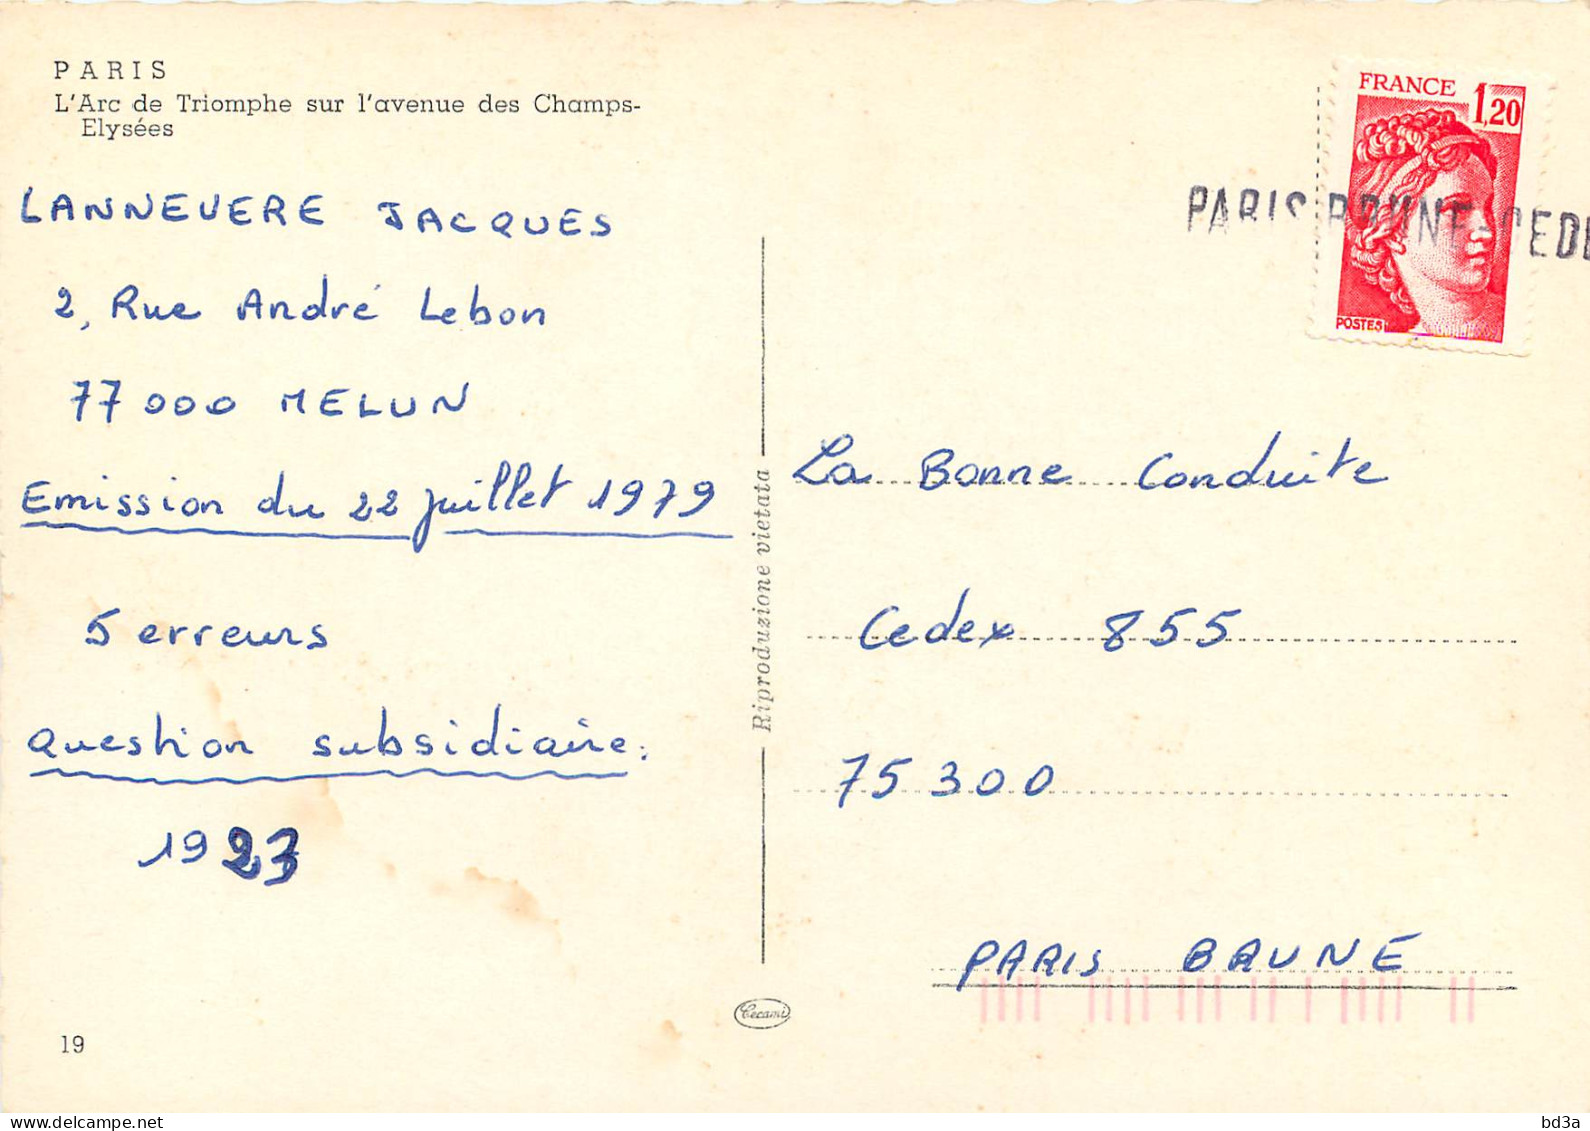 PARIS
L'Arc de Triomphe sur l'avenue des Champs-
Elysées
LANNEVERE JACQUES
2, Rue André Lebon
77000 MELUN
Emission du 22 juillet 1979
5 erreurs
question subsidiaire:
1923
19
Riproduzione vietata
Cecami
FRANCE 1,20
POSTES
PARIS BRUNE CEDE
La Bonne Conduite
Cedex 855
75300
PARIS BRUNE
delcampe.net
bd3a